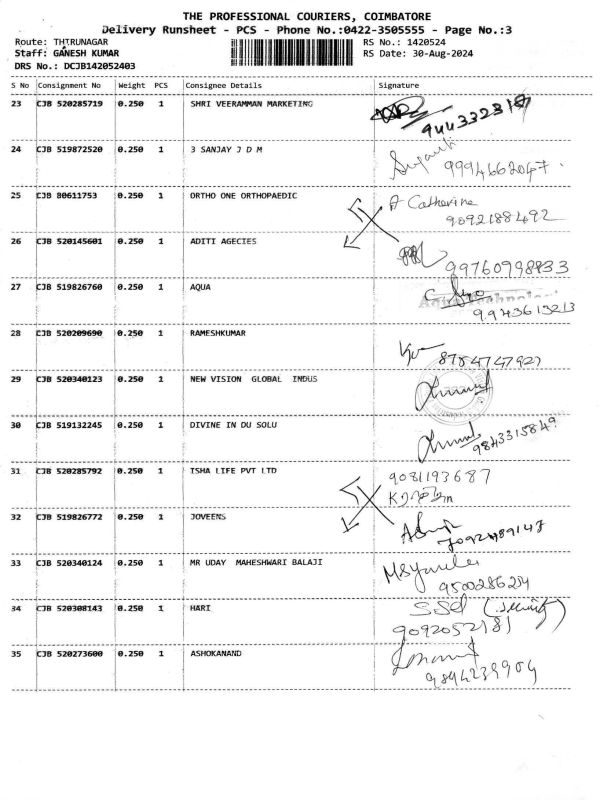 THE PROFESSIONAL COURIERS, COIMBATORE
Delivery Runsheet - PCS - Phone No.:0422-3505555 - Page No.:3
Route: THIRUNAGAR RS No.: 1420524
Staff: GANESH KUMAR RS Date: 30-Aug-2024
DRS No.: DCJB142052403
S No Consignment No Weight PCS Consignee Details Signature
23 CJB 520285719 0.250 1 SHRI VEERAMMAN MARKETING
24 CJB 519872520 0.250 1 3 SANJAY J D M
9994662047.
25 CJB 80611753 0.250 1 ORTHO ONE ORTHOPAEDIC A Catherine
9092188492
26 CJB 520145601 0.250 1 ADITI AGECIES
99760998833
27 CJB 519826760 0.250 1 AQUA
9943613213
28 CJB 520209690 0.250 1 RAMESHKUMAR
8754747927
29 CJB 520340123 0.250 1 NEW VISION GLOBAL INDUS
30 CJB 519132245 0.250 1 DIVINE IN DU SOLU
9843315849
31 CJB 520285792 0.250 1 ISHA LIFE PVT LTD 9081193687
32 CJB 519826772 0.250 1 JOVEENS
7092489147
33 CJB 520340124 0.250 1 MR UDAY MAHESHWARI BALAJI
9500286254
34 CJB 520308143 0.250 1 HARI (security)
9092052181
35 CJB 520273600 0.250 1 ASHOKANAND
9894239904